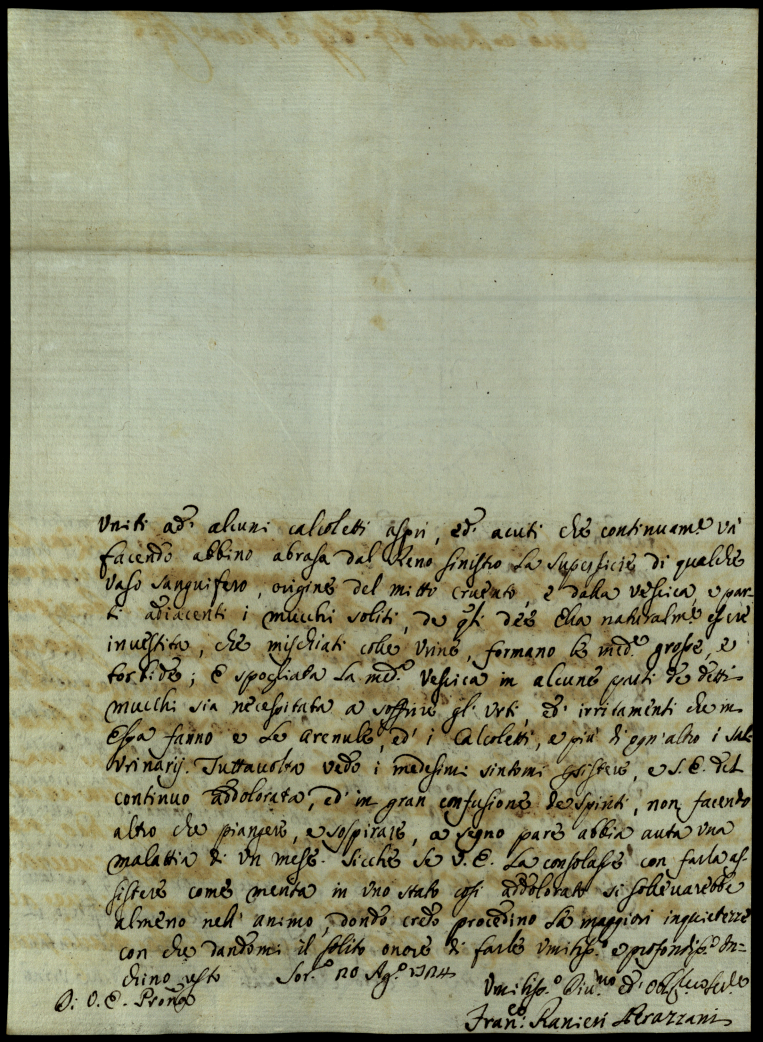 Uniti ad' alcuni calcoletti aspri, ed' acuti che continuam.e và
facendo abbino abrasa dal Reno sinistro La superficie di qualche
vaso sanguifero, origine del mitto cruento, e dalla vessica, e par-
ti adiacenti i mucchi soliti, de q.li dee Ella naturalm.e essere
investita, che mischiati colle Urine, formano le med.e grosse, e
torbide; E spogliata La med.a Vessica in alcune parti de detti
mucchi sia necessitata a soffrire gl' Urti, ed' irritamenti che in
Essa fanno e Le arenule, ed' i Calcoletti, e più di ogn'altro i sali
Urinarij. Tuttavolta vedo i medesimi sintomi esistere, e S. E. del
continuo addolorata, ed' in gran confusione de spiriti, non facendo
altro che piangere, e sospirare, a segno pare abbia auta una
malattia di un mese. Sicche se V. E. La consolasse con farla as-
sistere come merita in uno stato così addolorato si solleverebbe
almeno nell' animo, donde credo procedino Le maggiori inquietezze
con che dandomi il solito onore di farle Umiliss.o e profondiss.o In-
chino resto
Di V. E. Pron̄e
Umiliss.o Div.mo ed' Obblig.mo Ser.e
Fran.co Ranieri